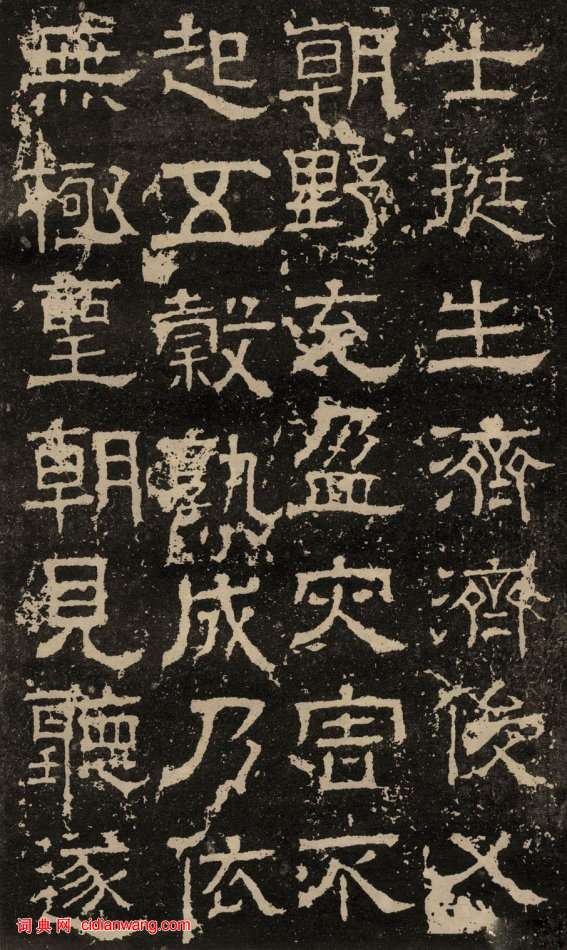 士挺生濟濟俊乂
朝野充盈灾害不
起五穀熟成乃依
無極聖朝見聽遂
词典网 cidianwang.com